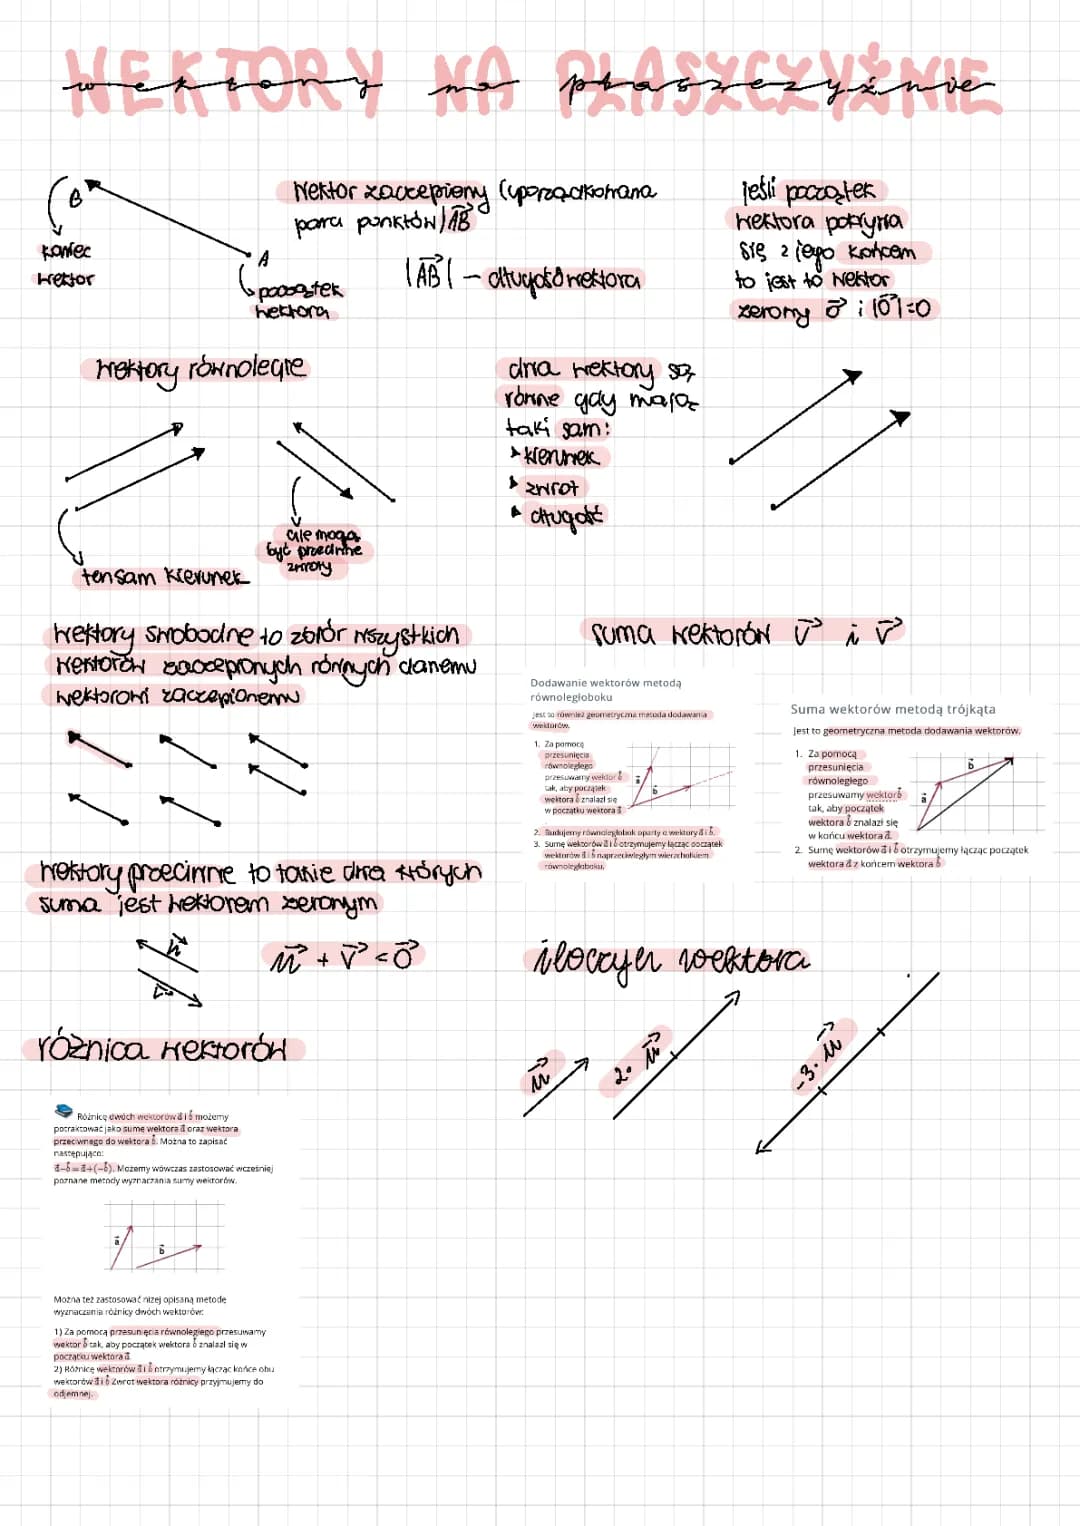 WEKTORY NA PŁASZCZYŹNIE
wektory na płaszczyźnie
B
koniec
wektor
A
początek
wektora
Wektor zaczepiony (uporządkowana
para punktów) AB→
|AB→| – długość wektora
jeśli początek
wektora pokrywa
się z jego końcem
to jest to wektor
zerowy o→ i |o→|=0
wektory równoległe
ten sam kierunek
ale mogą
być przeciwne
zwroty
dwa wektory są
równe gdy mają
taki sam:
kierunek
zwrot
długość
wektory swobodne to zbiór wszystkich
wektorów zaczepionych równych danemu
wektorowi zaczepionemu
suma wektorów v→ i v→
Dodawanie wektorów metodą
równoległoboku
Jest to również geometryczna metoda dodawania
wektorów.
1. Za pomocą
przesunięcia
równoległego
przesuwamy wektor b→
tak, aby początek
wektora b→ znalazł się
w początku wektora a→
a→
b→
2. Budujemy równoległobok oparty o wektory a→ i b→.
3. Sumę wektorów a→ i b→ otrzymujemy łącząc początek
wektorów a→ i b→ naprzeciwległym wierzchołkiem
równoległoboku.
Suma wektorów metodą trójkąta
Jest to geometryczna metoda dodawania wektorów.
1. Za pomocą
przesunięcia
równoległego
przesuwamy wektor b→
tak, aby początek
wektora b→ znalazł się
w końcu wektora a→.
a→
b→
2. Sumę wektorów a→ i b→ otrzymujemy łącząc początek
wektora a→ z końcem wektora b→
wektory przeciwne to takie dwa których
suma jest wektorem zerowym
u→ + v→ = o→
iloczyn wektora
u→
2· u→
-3· u→
różnica wektorów
Różnicę dwóch wektorów a→ i b→ możemy
potraktować jako sumę wektora a→ oraz wektora
przeciwnego do wektora b→. Można to zapisać
następująco:
a→−b→=a→+(−b→). Możemy wówczas zastosować wcześniej
poznane metody wyznaczania sumy wektorów.
a→
b→
Można też zastosować niżej opisaną metodę
wyznaczania różnicy dwóch wektorów:
1) Za pomocą przesunięcia równoległego przesuwamy
wektor b→ tak, aby początek wektora b→ znalazł się w
początku wektora a→
2) Różnicę wektorów a→ i b→ otrzymujemy łącząc końce obu
wektorów a→ i b→ Zwrot wektora różnicy przyjmujemy do
odjemnej.